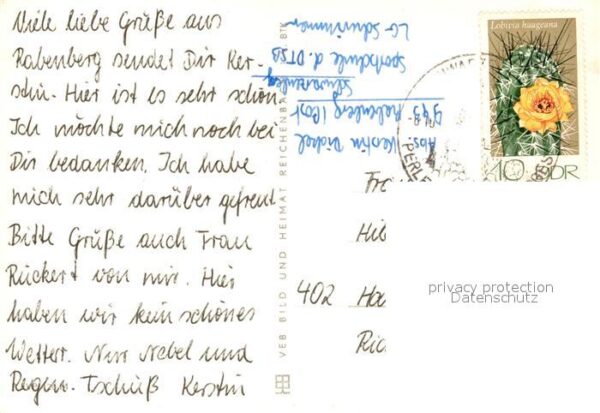 Viele liebe Grüße aus
Rabenberg sendet Dir Ker-
stin. Hier ist es sehr schön.
Ich möchte mich noch bei
Dir bedanken. Ich habe
mich sehr darüber gefreut.
Bitte Grüße auch Frau
Rückert von mir. Hier
haben wir kein schönes
Wetter. Nur Nebel und
Regen. Tschüß Kerstin
VEB BILD UND HEIMAT REICHENBACH
Abs. Kerstin
Rabenberg
Schwarzenberg
Sportschule d. DTSB
LG Schwimmen
Lobivia haageana
10 DDR
PERLE
402
privacy protection
Datenschutz